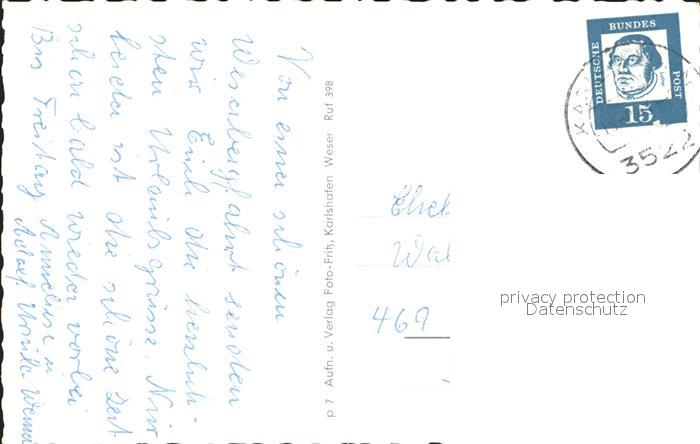 Von einer schönen
Weserbergfahrt senden
wir Euch die herzlich-
sten Urlaubsgrüsse. Nur
leider ist die schöne Zeit
schon bald wieder vorbei.
Bis Freitag Annelise u
Adolf. Ursula Werner
p 7 Aufn. u. Verlag Foto-Fritz, Karlshafen Weser Ruf 398
DEUTSCHE
BUNDES
POST
Luther
15
KA
3522
Wal
469
privacy protection
Datenschutz